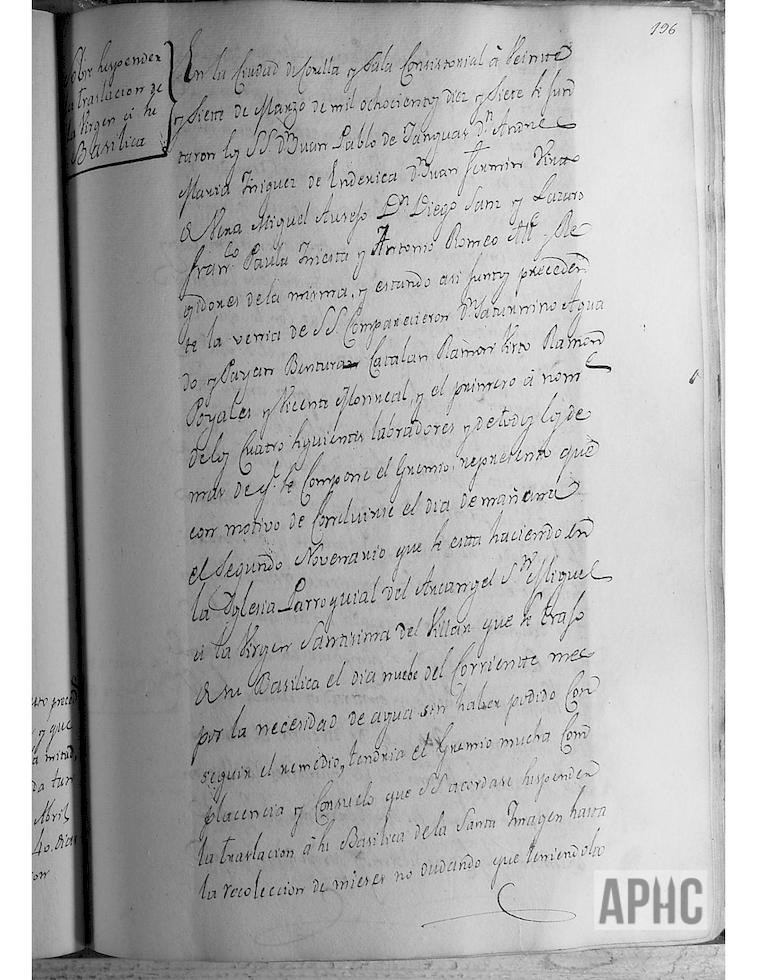 196
Sobre suspender
la traslacion de
la Virgen á su
Basilica
En la Ciudad de Corella y Sala Consistorial á Veinte
y Siete de Marzo de mil ochocientos diez y siete se jun
taron los SS. Dn Juan Pablo de Tanguas Dn Andre
Maria Iniguez de Endenica Dn Juan Fermin Virto
de Vera Miguel Ausejo Dn Diego Sanz y Lazaro
Franco Paula Iniesta y Antonio Romeo Re
gidores de la misma, y estando asi juntos preceden
te la venia de SS. Comparecieron Dn Saturnino Agua
do y Payan Bentura Catalan Ramon Virto Ramon
Poyales y Vicente Monreal, y el primero á nom
de los Cuatro siguientes labradores y de todos los de
mas de q.e se Compone el Gremio, represento que
con motivo de Concluirse el dia de mañana
el Segundo Novenario que se esta haciendo en
la Iglesia Parroquial del Arcangel Sn Miguel
á la Virgen Santisima del Villar que se trajo
de su Basilica el dia nuebe del Corriente mes
por la necesidad de agua sin haber podido Con
seguir el remedio, tendria el Gremio mucha Com
placencia y Consuelo que SS. acordase suspender
la traslacion á su Basilica de la Santa Imagen hasta
la recoleccion de mieses no dudando que teniendola
y que
Abril
APHC